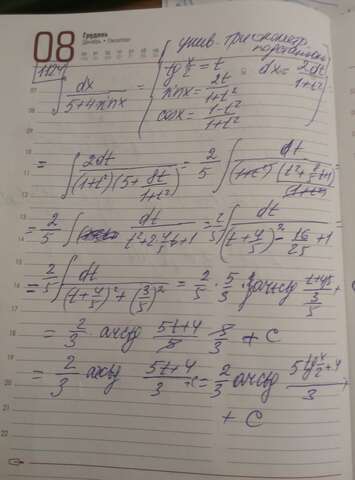 08 Грудень
1124
∫ dx / (5+4sinx) = { унив. тригонометр. подстановка
tg x/2 = t ; dx = 2dt / (1+t²)
sinx = 2t / (1+t²)
cosx = (1-t²) / (1+t²) }
= ∫ 2dt / ((1+t²)(5 + 8t/(1+t²))) = 2/5 ∫ dt / (t² + 8/5 t + 1) =
= 2/5 ∫ dt / (t² + 2·4/5 t + 1) = 2/5 ∫ dt / ((t + 4/5)² - 16/25 + 1) =
= 2/5 ∫ dt / ((t + 4/5)² + (3/5)²) = 2/5 · 5/3 arctg (t + 4/5) / (3/5) +
= 2/3 · arctg (5t+4)/3 + C
= 2/3 arctg (5t+4)/3 + C = 2/3 arctg (5 tg x/2 + 4)/3
+ C
17
18
19
20
21
22